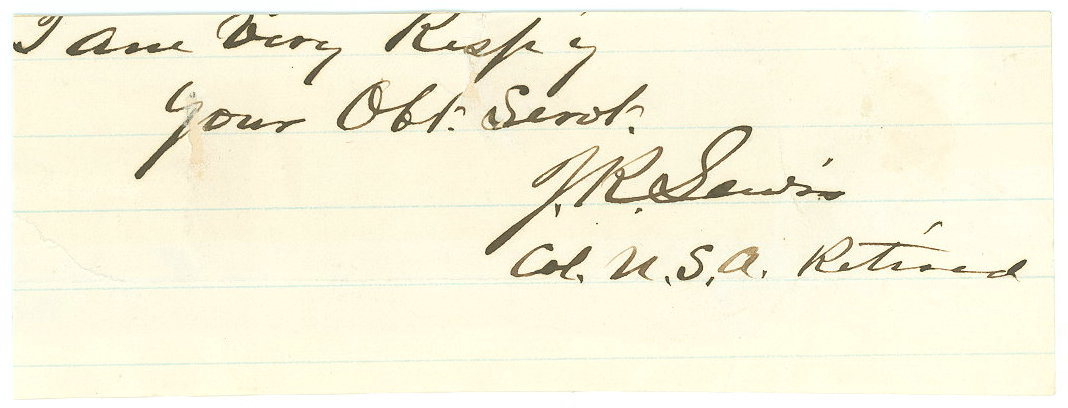 I am Very Resp'y
Your Obt. Servt.
J. R. Lewis
Col. U.S.A. Retired